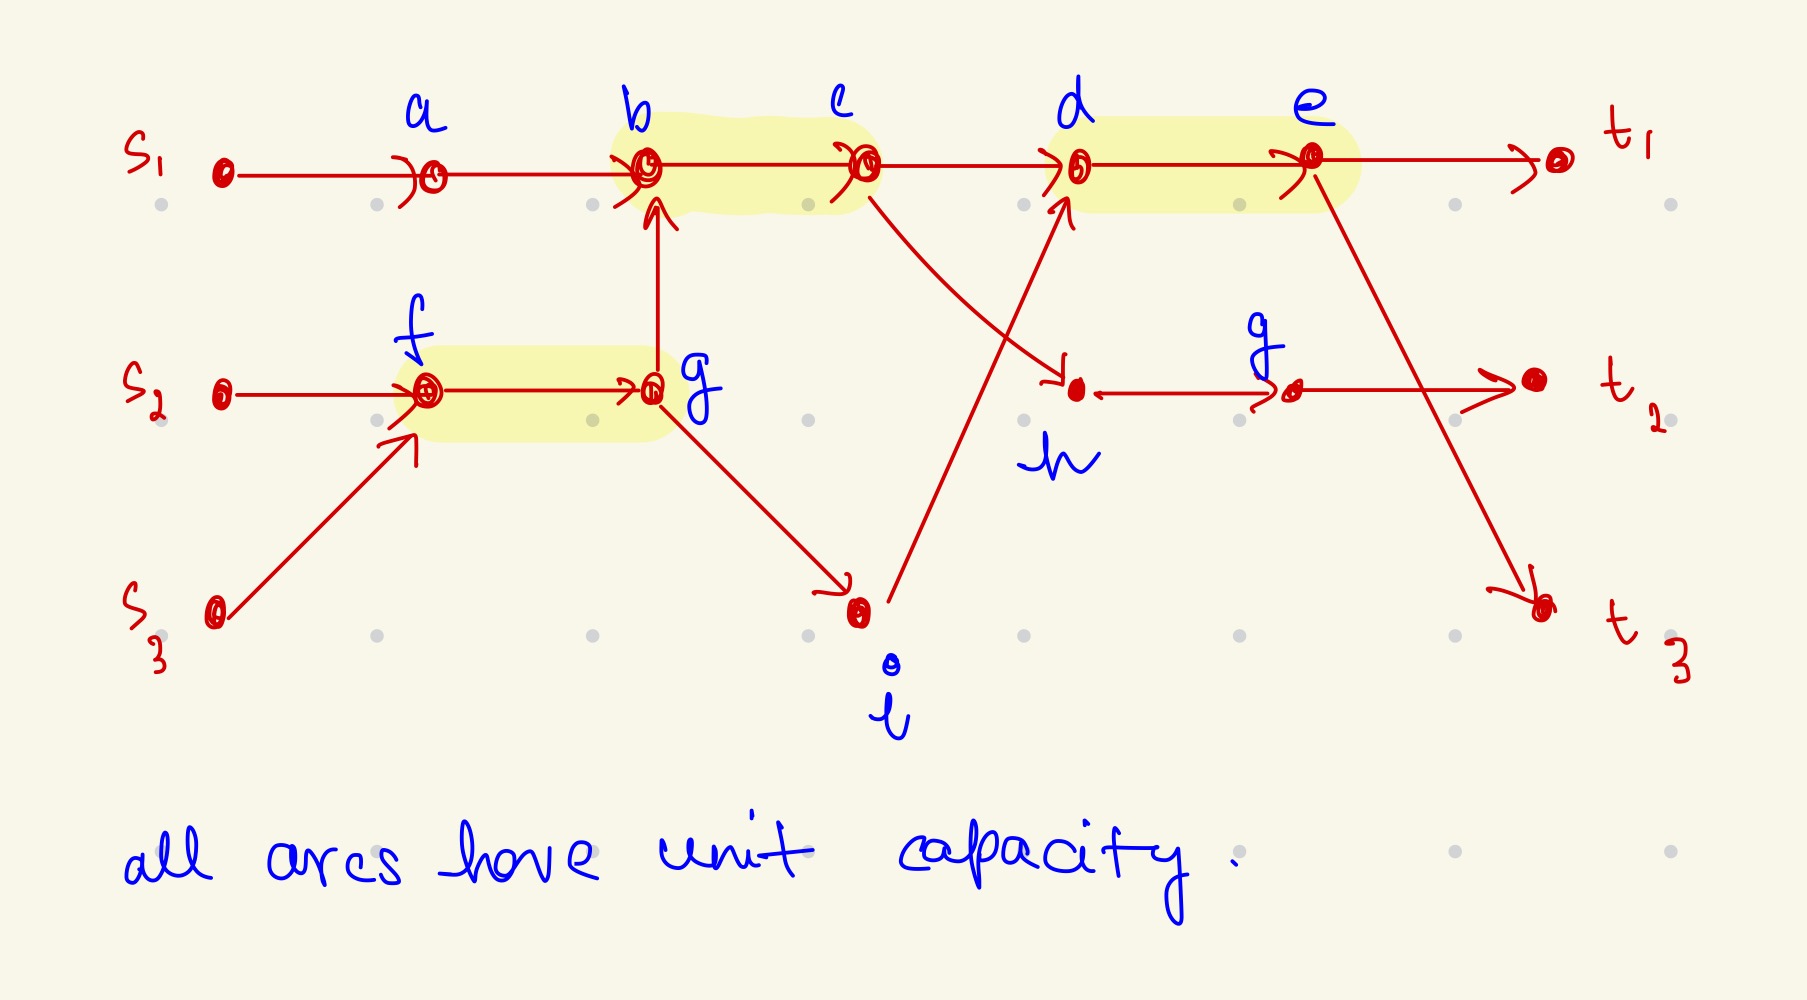 a b c d e
s1 t1
f g g
s2 t2
h
s3 t3
i
all arcs have unit capacity.